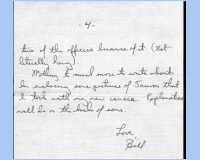 -4-
two of the officers because of it. (Not
literally hung)
Nothing to much more to write about
be enclosing some pictures of Taiwan that
I took with my new camera. Explanation
will be on the backs of some.
Love
Bill